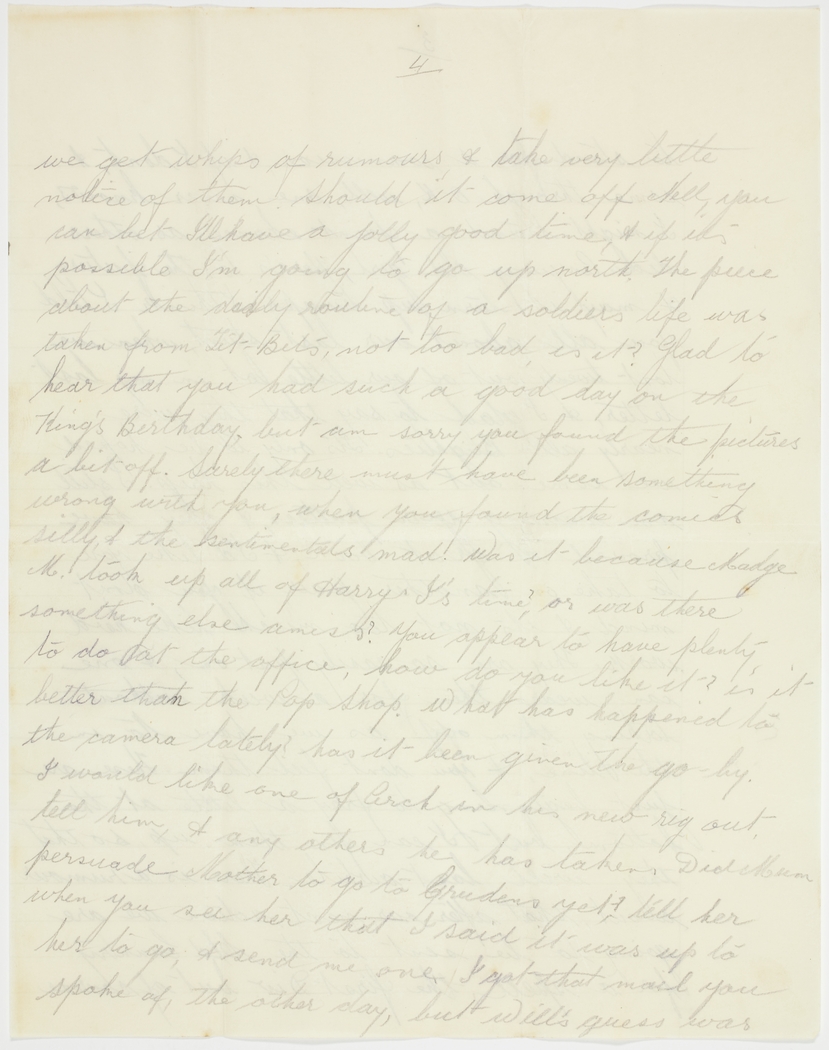 4
we get whips of rumours, & take very little
notice of them. Should it come off Nell, you
can bet I'll have a jolly good time, & if it's
possible I'm going to go up north. The piece
about the daily routine of a soldiers life was
taken from Tit-Bits, not too bad, is it? Glad to
hear that you had such a good day on the
King's Birthday, but am sorry you found the pictures
a bit off. Surely there must have been something
wrong with you, when you found the comics
silly, & the sentimentals mad! Was it because Madge
M! took up all of Harry I's time?, or was there
something else amiss? You appear to have plenty
to do at the office, how do you like it? is it
better than the Pop Shop. What has happened to
the camera lately? has it been given the go-by.
I would like one of Arch in his new rig out,
tell him, & any others he has taken. Did Mum
persuade Mother to go to Grudens yet? Tell her
when you see her that I said it was up to
her to go, & send me one. I got that mail you
spoke of, the other day, but Will's guess was